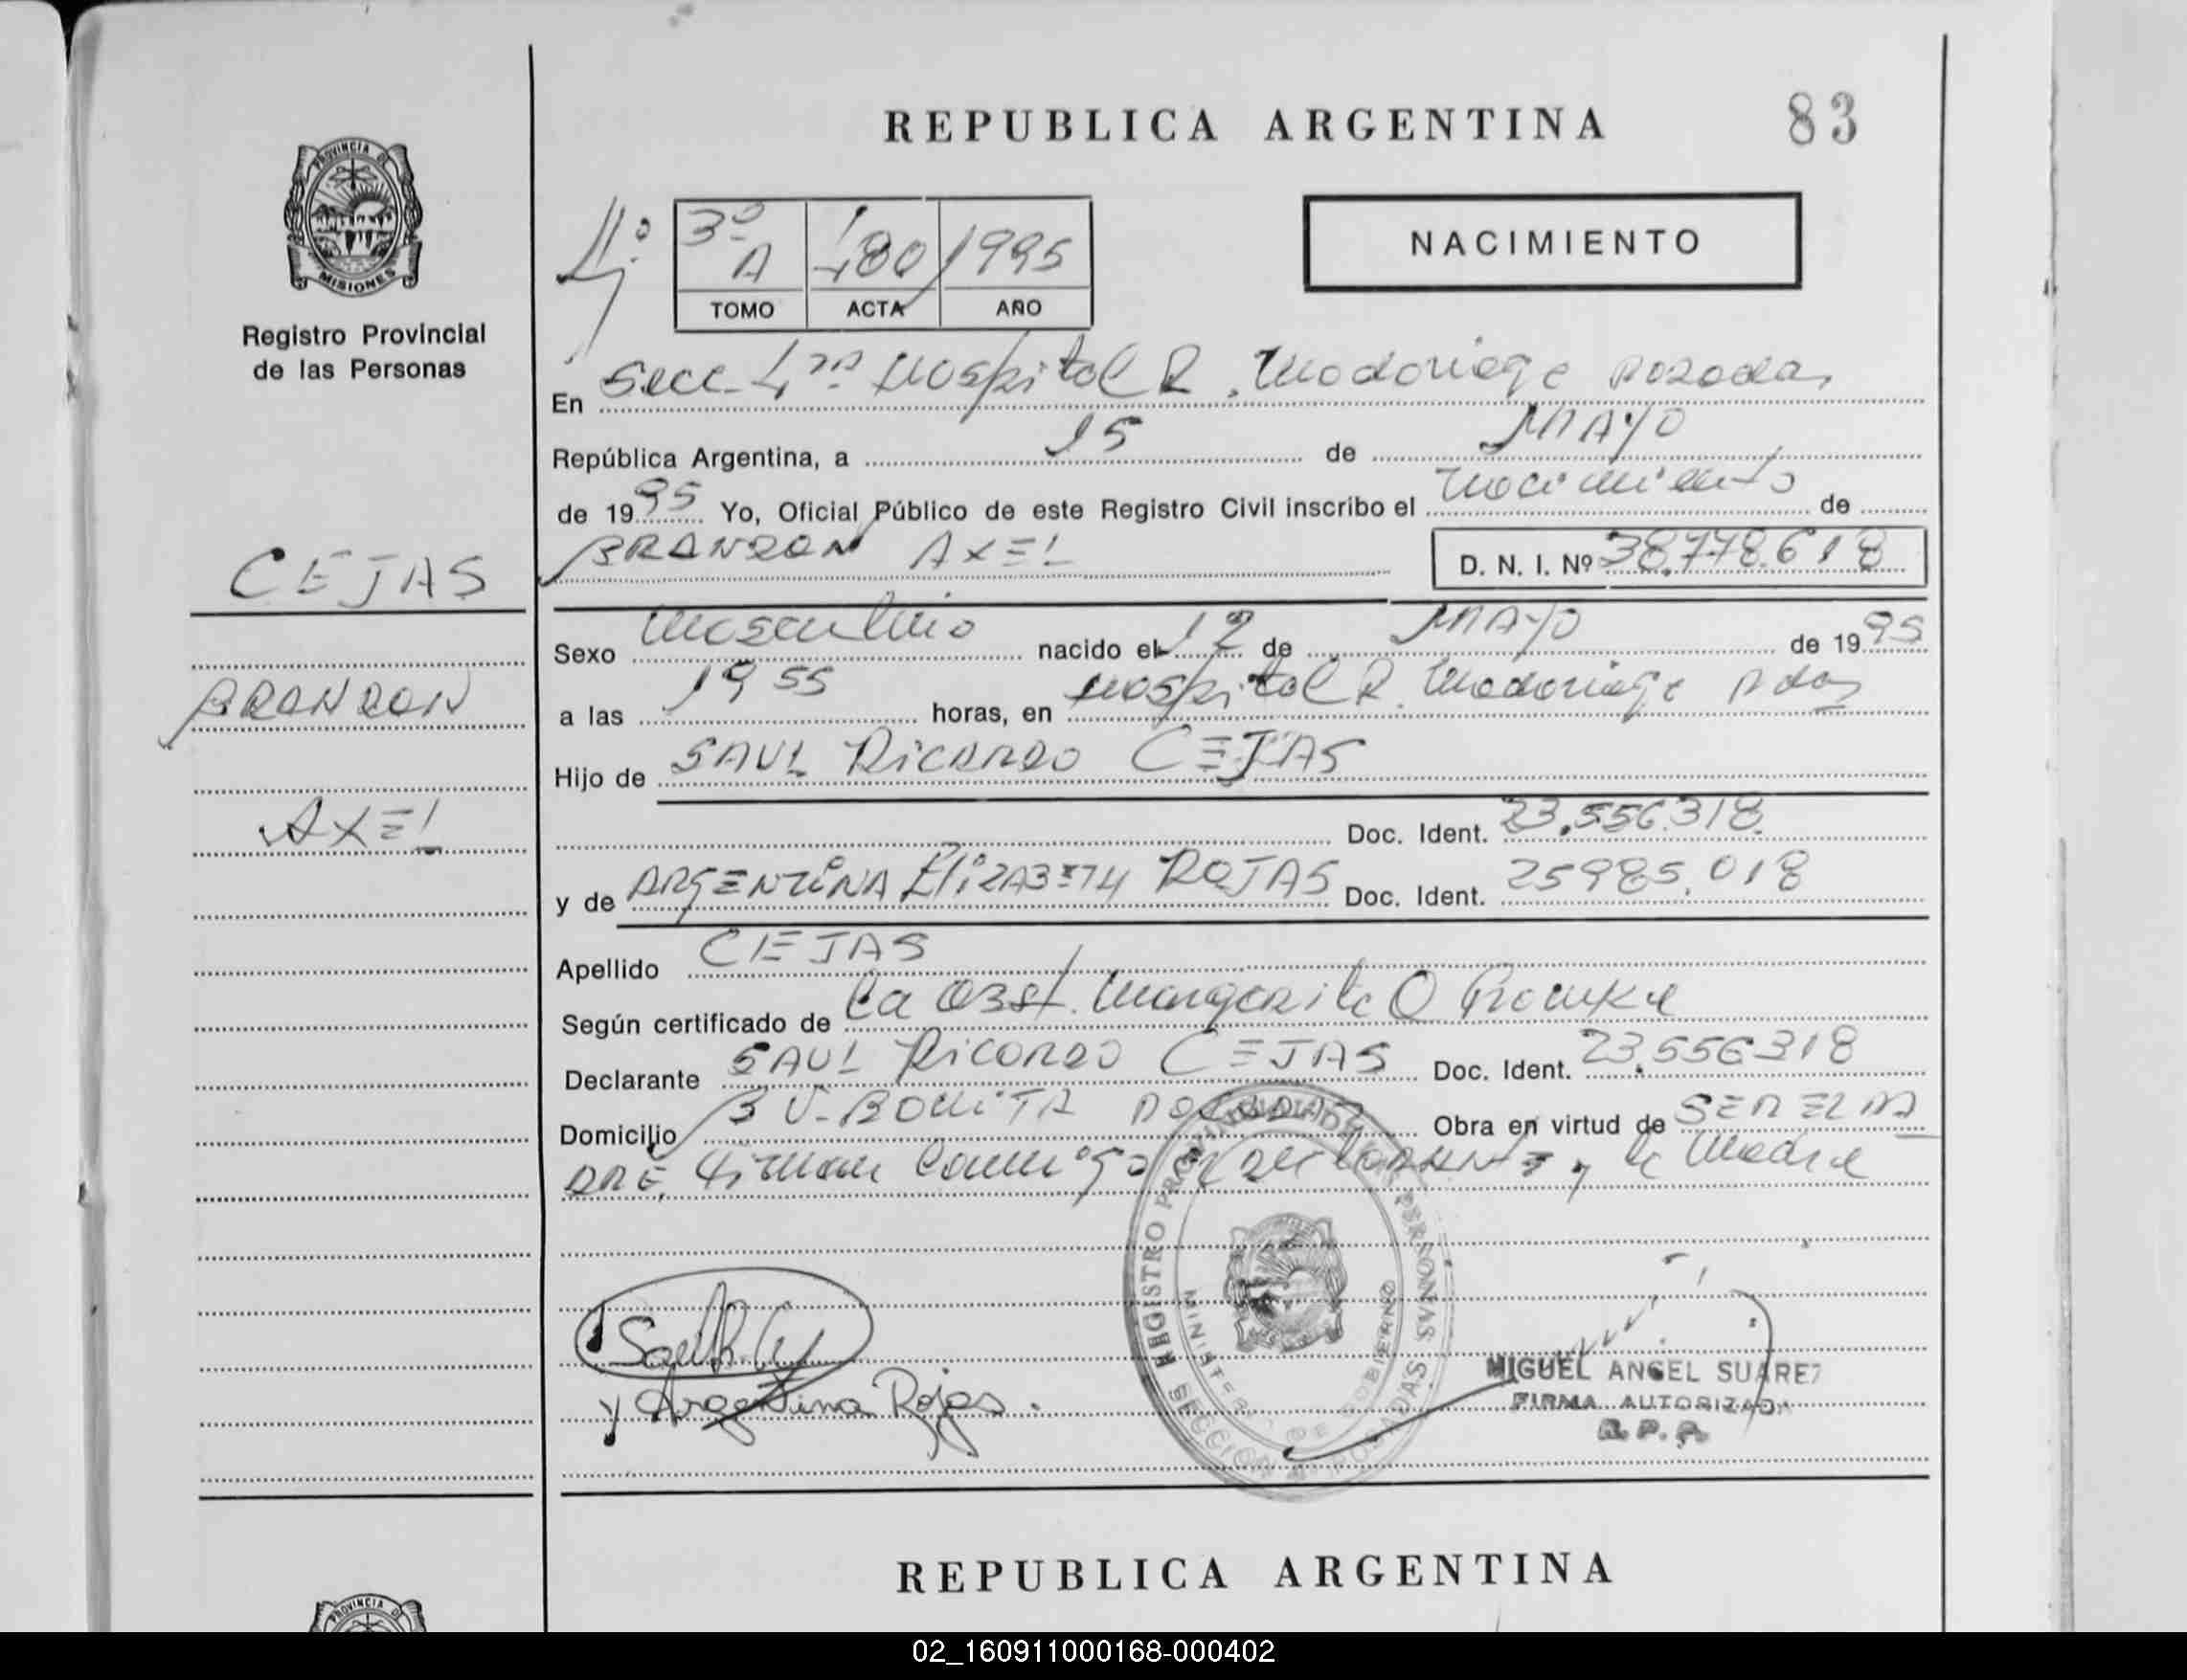 REPUBLICA ARGENTINA
83
PROVINCIA DE
MISIONES
Registro Provincial
de las Personas
4º
3º A 480 1995
TOMO ACTA AÑO
NACIMIENTO
En Secc 4ta Hospital R. Madariaga Posadas
República Argentina, a 15 de MAYO
de 1995 Yo, Oficial Público de este Registro Civil inscribo el nacimiento de
BRANDON AXEL
D. N. I. Nº 38.778.618
CEJAS
BRANDON
AXEL
Sexo masculino nacido el 12 de MAYO de 1995
a las 19,55 horas, en Hospital R. Madariaga Pdas
Hijo de SAUL Ricardo CEJAS
Doc. Ident. 23.556.318
y de ARGENTINA ElizABETH ROJAS Doc. Ident. 25985.018
Apellido CEJAS
Según certificado de la Obst. Margarita O
Declarante SAUL Ricardo CEJAS Doc. Ident. 23.556318
Domicilio B V. BONITA POSADAS Obra en virtud de SER EL PA
DRE, firman conmigo el declarante y la Madre
REGISTRO PROVINCIAL DE LAS PERSONAS
MINISTERIO DE GOBIERNO
SECCION 4ª POSADAS
y Argentina Rojas.
MIGUEL ANGEL SUAREZ
FIRMA AUTORIZADA
R. P. P.
REPUBLICA ARGENTINA
PROVINCIA D
02_160911000168-000402